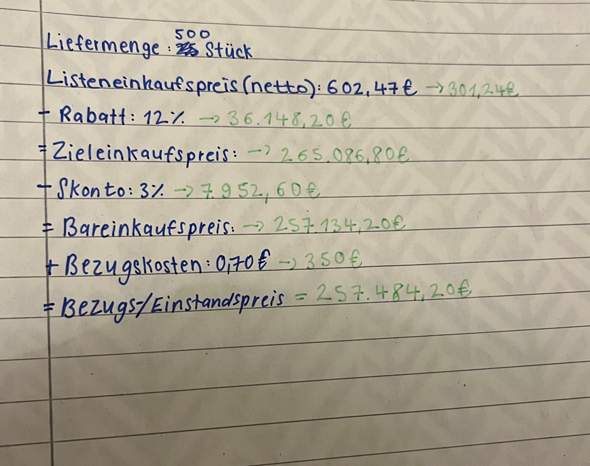 Liefermenge: 500 Stück
Listeneinkaufspreis (netto): 602,47€ → 301,24€
- Rabatt: 12% → 36.148,20€
= Zieleinkaufspreis: → 265.086,80€
- Skonto: 3% → 7.952,60€
= Bareinkaufspreis: → 257.134,20€
+ Bezugskosten: 0,70€ → 350€
= Bezugs-/Einstandspreis = 257.484,20€